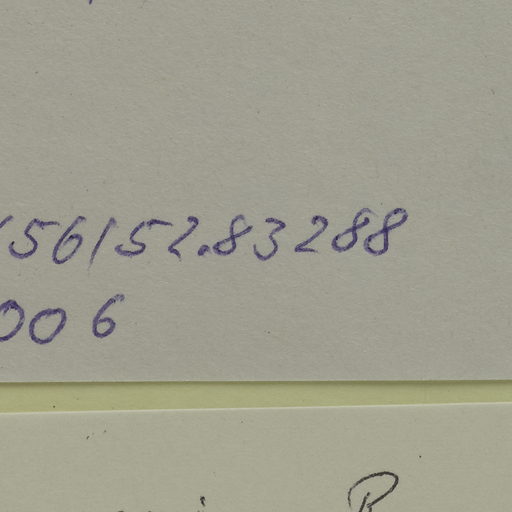 56152.83288
006
R